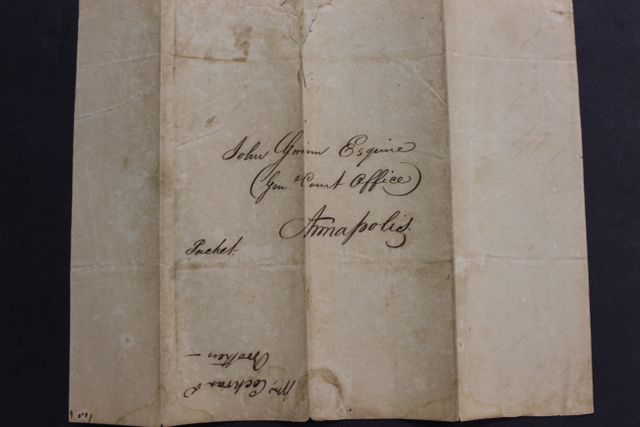 John Gwinn Esquire
(Gen.l Court Office)
Annapolis.
Packet.
Wm. Cochran &
Brothers —